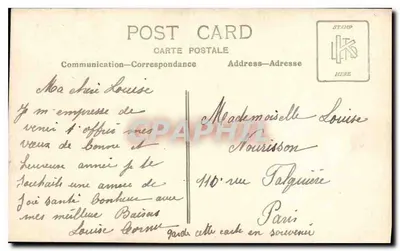 POST CARD
CARTE POSTALE
Communication—Correspondance
Address—Adresse
STAMP
HERE
Ma chère Louise
Je m'empresse de
venir t'offrir mes
vœux de bonne et
heureuse année je te
souhaits une année de
Joie santé Bonheur avec
mes meilleurs Baisers
Louise
garde cette carte en souvenir
Mademoiselle Louise
Nourisson
110 rue Falguière
Paris